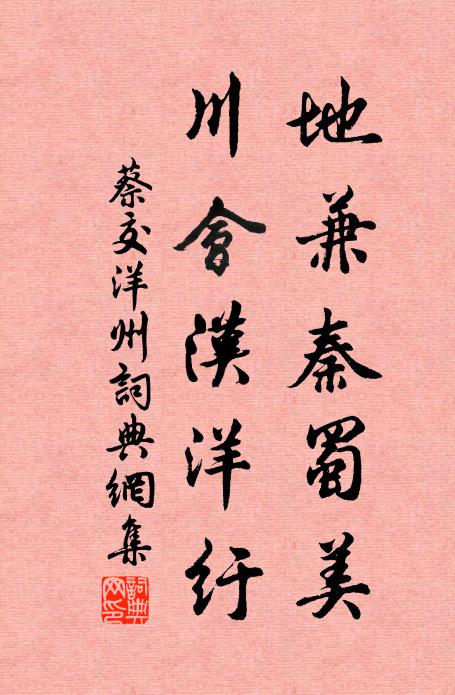 地兼秦蜀美
川會漢洋紆
蔡交洋州詞典網集
詞典
网印